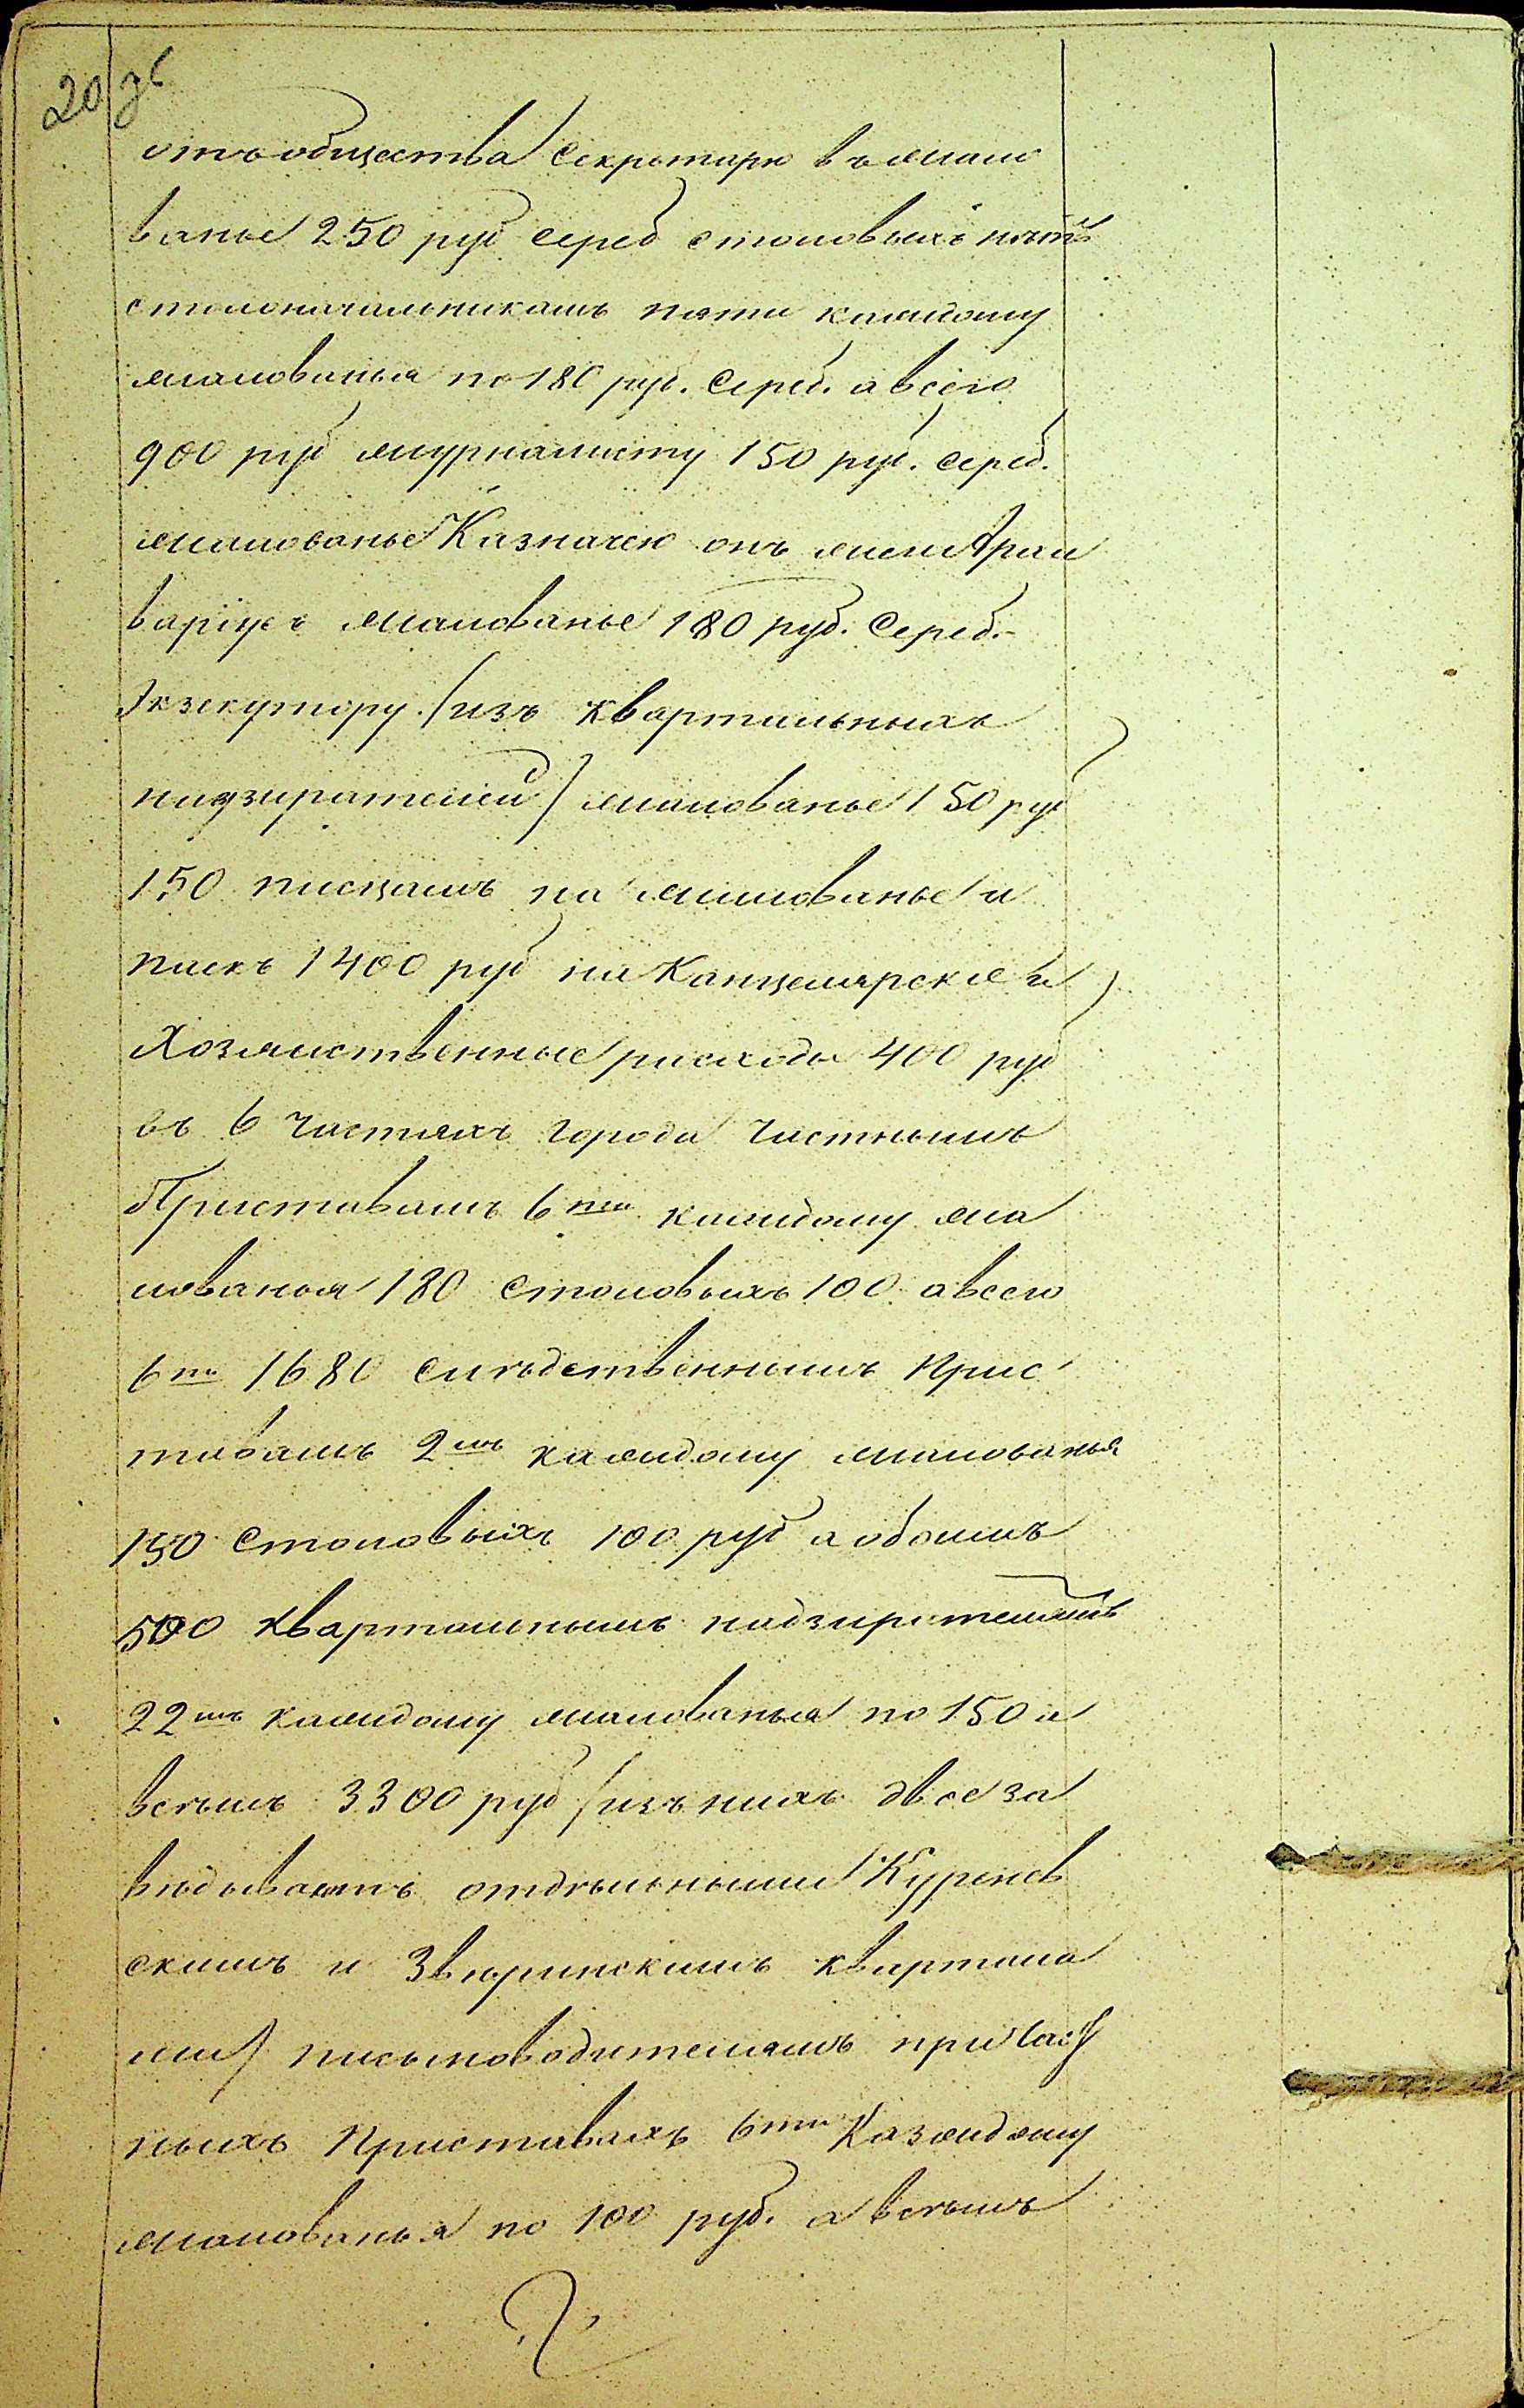 20 зв
отъ общества Секретарю въ жало
ванье 250 руб сереб столовыхъ нѣтъ
столоначальникамъ пяти каждому
жалованья по 180 руб. Сереб. а всего
900 руб журналисту 150 руб. сереб.
жалованье Казначею онъ же и Архи
варіусъ жалованье 180 руб. Сереб.
Экзекутору (изъ квартальныхъ
надзирателей) жалованье 150 руб
150 писцамъ на жалованье и
паекъ 1400 руб на Канцелярскіе и
Хозяйственные расходы 400 руб
въ 6 частяхъ города Частнымъ
Приставамъ 6ти каждому жа
лованья 180 столовыхъ 100 а всего
6ти 1680 слѣдственнымъ Прис
тавамъ 2мъ каждому жалованья
150 Столовыхъ 100 руб а обоимъ
500 Квартальнымъ надзирателямъ
22мъ каждому жалованья по 150 а
всѣмъ 3300 руб (изъ нихъ двое за
вѣдываютъ отдѣльными Куренев
скимъ и Звѣринскимъ квартала
ми) письмоводителямъ при Част
ныхъ Приставахъ 6ти Каждому
жалованья по 100 руб. а всѣмъ